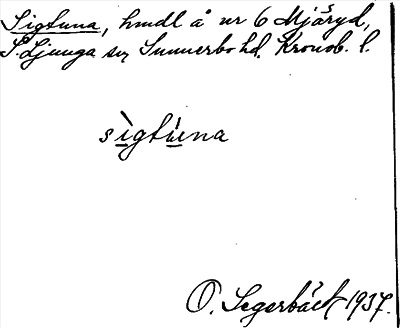 Sigtuna, hmdl å nr 6 Mjäryd,
S. Ljunga sn, Sunnerbo hd. Kronob. l.
sìgtùna
O. Segerbäck 1937.